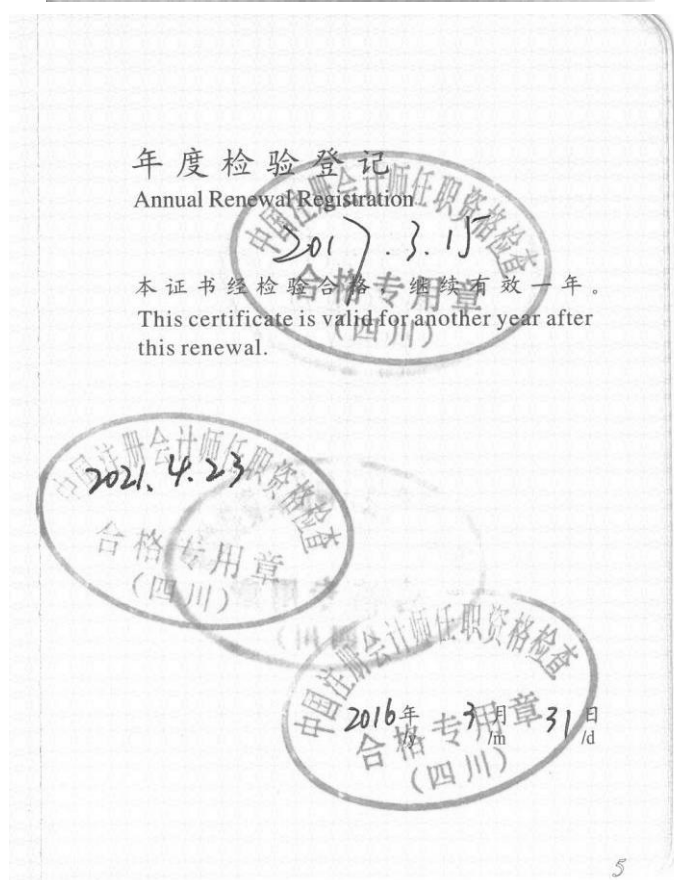 年度检验登记
Annual Renewal Registration
中国注册会计师任职资格检查
2017.3.15
合格专用章
(四川)
本证书经检验合格，继续有效一年。
This certificate is valid for another year after
this renewal.
中国注册会计师任职资格检查
2021.4.23
合格专用章
(四川)
中国注册会计师任职资格检查
2016年 3月 31日
/y /m /d
合格专用章
(四川)
5